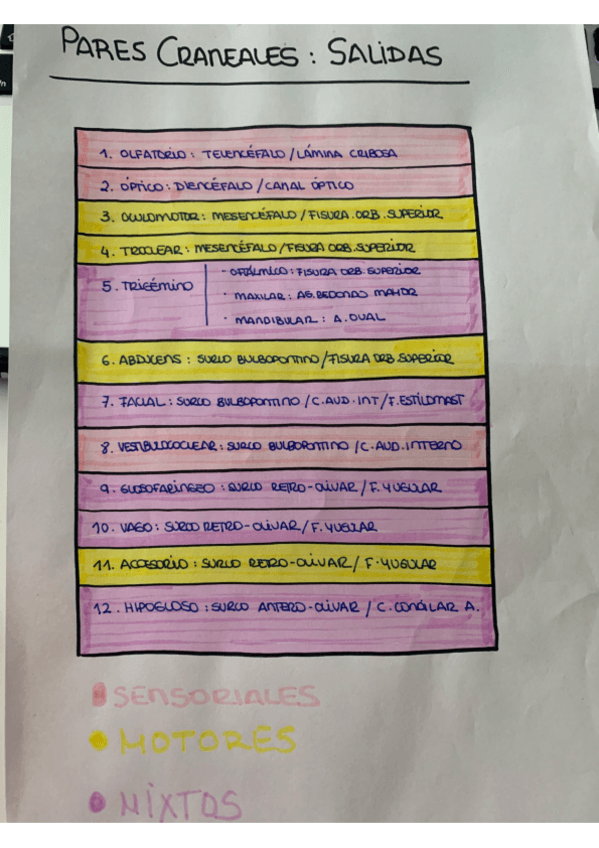 PARES CRANEALES: SALIDAS
1. OLFATORIO: TELENCÉFALO/LÁMINA CRIBOSA
2. ÓPTICO: DIENCÉFALO/CANAL ÓPTICO
3. OCULOMOTOR: MESENCÉFALO/FISURA.ORB.SUPERIOR
4. TROCLEAR: MESENCÉFALO/FISURA ORB.SUPERIOR
5. TRIGÉMINO
· OFTÁLMICO: FISURA ORB.SUPERIOR
· MAXILAR: AG.REDONDO MAYOR
· MANDIBULAR: A.OVAL
6. ABDUCENS: SURCO BULBOPONTINO/FISURA ORB SUPERIOR
7. FACIAL: SURCO BULBOPONTINO/C.AUD.INT/F.ESTILOMAST
8. VESTIBULOCOCLEAR: SURCO BULBOPONTINO/C.AUD.INTERNO
9. GLOSOFARINGEO: SURCO RETRO-OLIVAR/F. YUGULAR
10. VAGO: SURCO RETRO-OLIVAR/F. YUGULAR
11. ACCESORIO: SURCO RETRO-OLIVAR/F. YUGULAR
12. HIPOGLOSO: SURCO ANTERO-OLIVAR/C. CONDILAR A.
SENSORIALES
MOTORES
MIXTOS